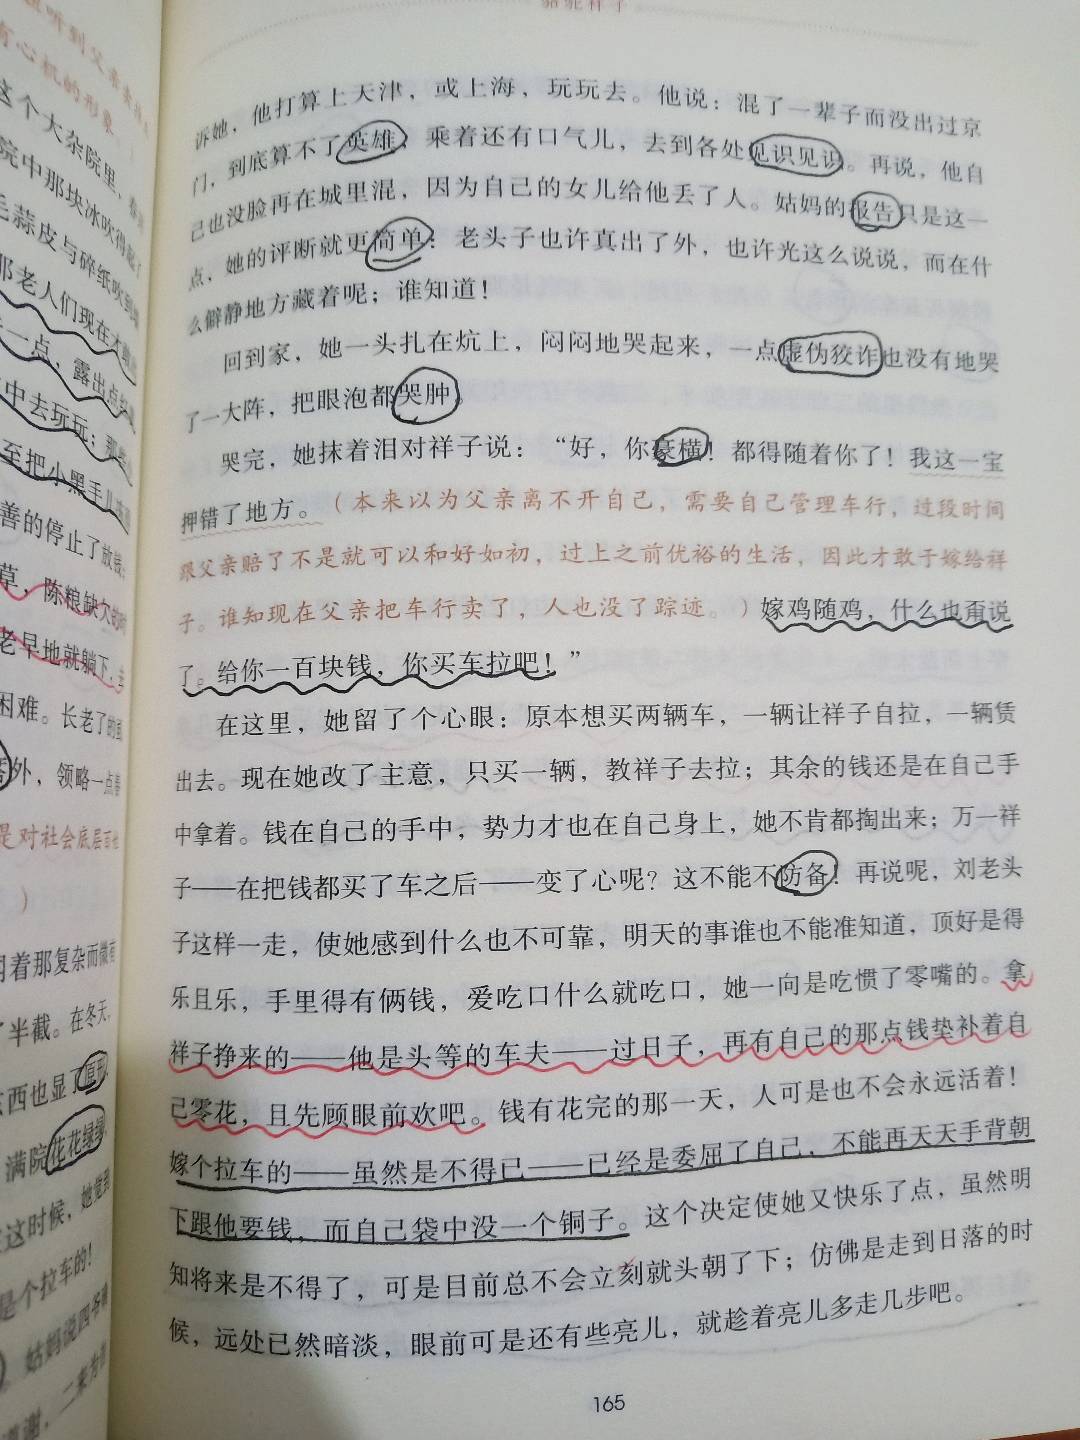 骆驼祥子
诉她，他打算上天津，或上海，玩玩去。他说：混了一辈子而没出过京
门，到底算不了英雄，乘着还有口气儿，去到各处见识见识。再说，他自
己也没脸再在城里混，因为自己的女儿给他丢了人。姑妈的报告只是这一
点，她的评断就更简单：老头子也许真出了外，也许光这么说说，而在什
么僻静地方藏着呢；谁知道！
回到家，她一头扎在炕上，闷闷地哭起来，一点虚伪狡诈也没有地哭
了一大阵，把眼泡都哭肿。
哭完，她抹着泪对祥子说：“好，你豪横！都得随着你了！我这一宝
押错了地方。（本来以为父亲离不开自己，需要自己管理车行，过段时间
跟父亲赔了不是就可以和好如初，过上之前优裕的生活，因此才敢于嫁给祥
子。谁知现在父亲把车行卖了，人也没了踪迹。）嫁鸡随鸡，什么也甭说
了。给你一百块钱，你买车拉吧！”
在这里，她留了个心眼：原本想买两辆车，一辆让祥子自拉，一辆赁
出去。现在她改了主意，只买一辆，教祥子去拉；其余的钱还是在自己手
中拿着。钱在自己的手中，势力才也在自己身上，她不肯都掏出来；万一祥
子——在把钱都买了车之后——变了心呢？这不能不防备！再说呢，刘老头
子这样一走，使她感到什么也不可靠，明天的事谁也不能准知道，顶好是得
乐且乐，手里得有俩钱，爱吃口什么就吃口，她一向是吃惯了零嘴的。拿
祥子挣来的——他是头等的车夫——过日子，再有自己的那点钱垫补着自
己零花，且先顾眼前欢吧。钱有花完的那一天，人可是也不会永远活着！
嫁个拉车的——虽然是不得已——已经是委屈了自己，不能再天天手背朝
下跟他要钱，而自己袋中没一个铜子。这个决定使她又快乐了点，虽然明
知将来是不得了，可是目前总不会立刻就头朝了下；仿佛是走到日落的时
候，远处已然暗淡，眼前可是还有些亮儿，就趁着亮儿多走几步吧。
165
听到父亲
有心机的形象
这个大杂院里，春
院中那块冰吹得
毛蒜皮与碎纸吹到
那老人们现在才
一点，露出点
中去玩玩；那
至把小黑手儿
善的停止了放
草，陈粮缺欠的
老早地就躺下，
困难。长老了的
外，领略一点
是对社会底层百姓
）
着那复杂而微
了半截。在冬天，
西也显了原形
满院花花绿绿
这时候，她觉到
是个拉车的！
姑妈说四爷
道谢，二来为